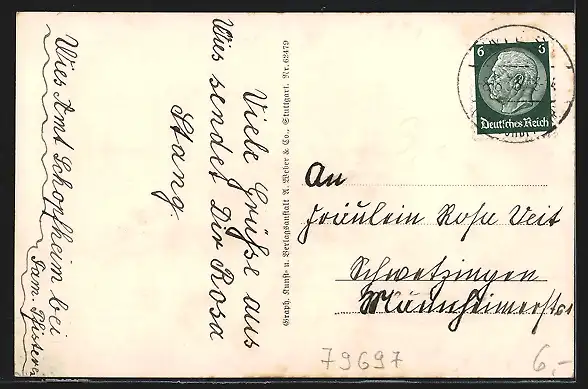 Viele Grüße aus
Wies sendet Dir Rosa
Stang
Wies Amt Schopfheim bei
Fam. Pfisterer
Graph. Kunst- u. Verlagsanstalt A. Weber & Co., Stuttgart. Nr. 62479
6 6
Deutsches Reich
An
Fräulein Rosa Veit
Schwetzingen
Mannheimerstr
79697
6,-